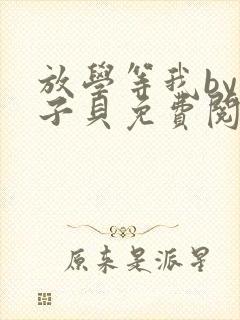 放學等我by
子貝免費閱
原來是派星